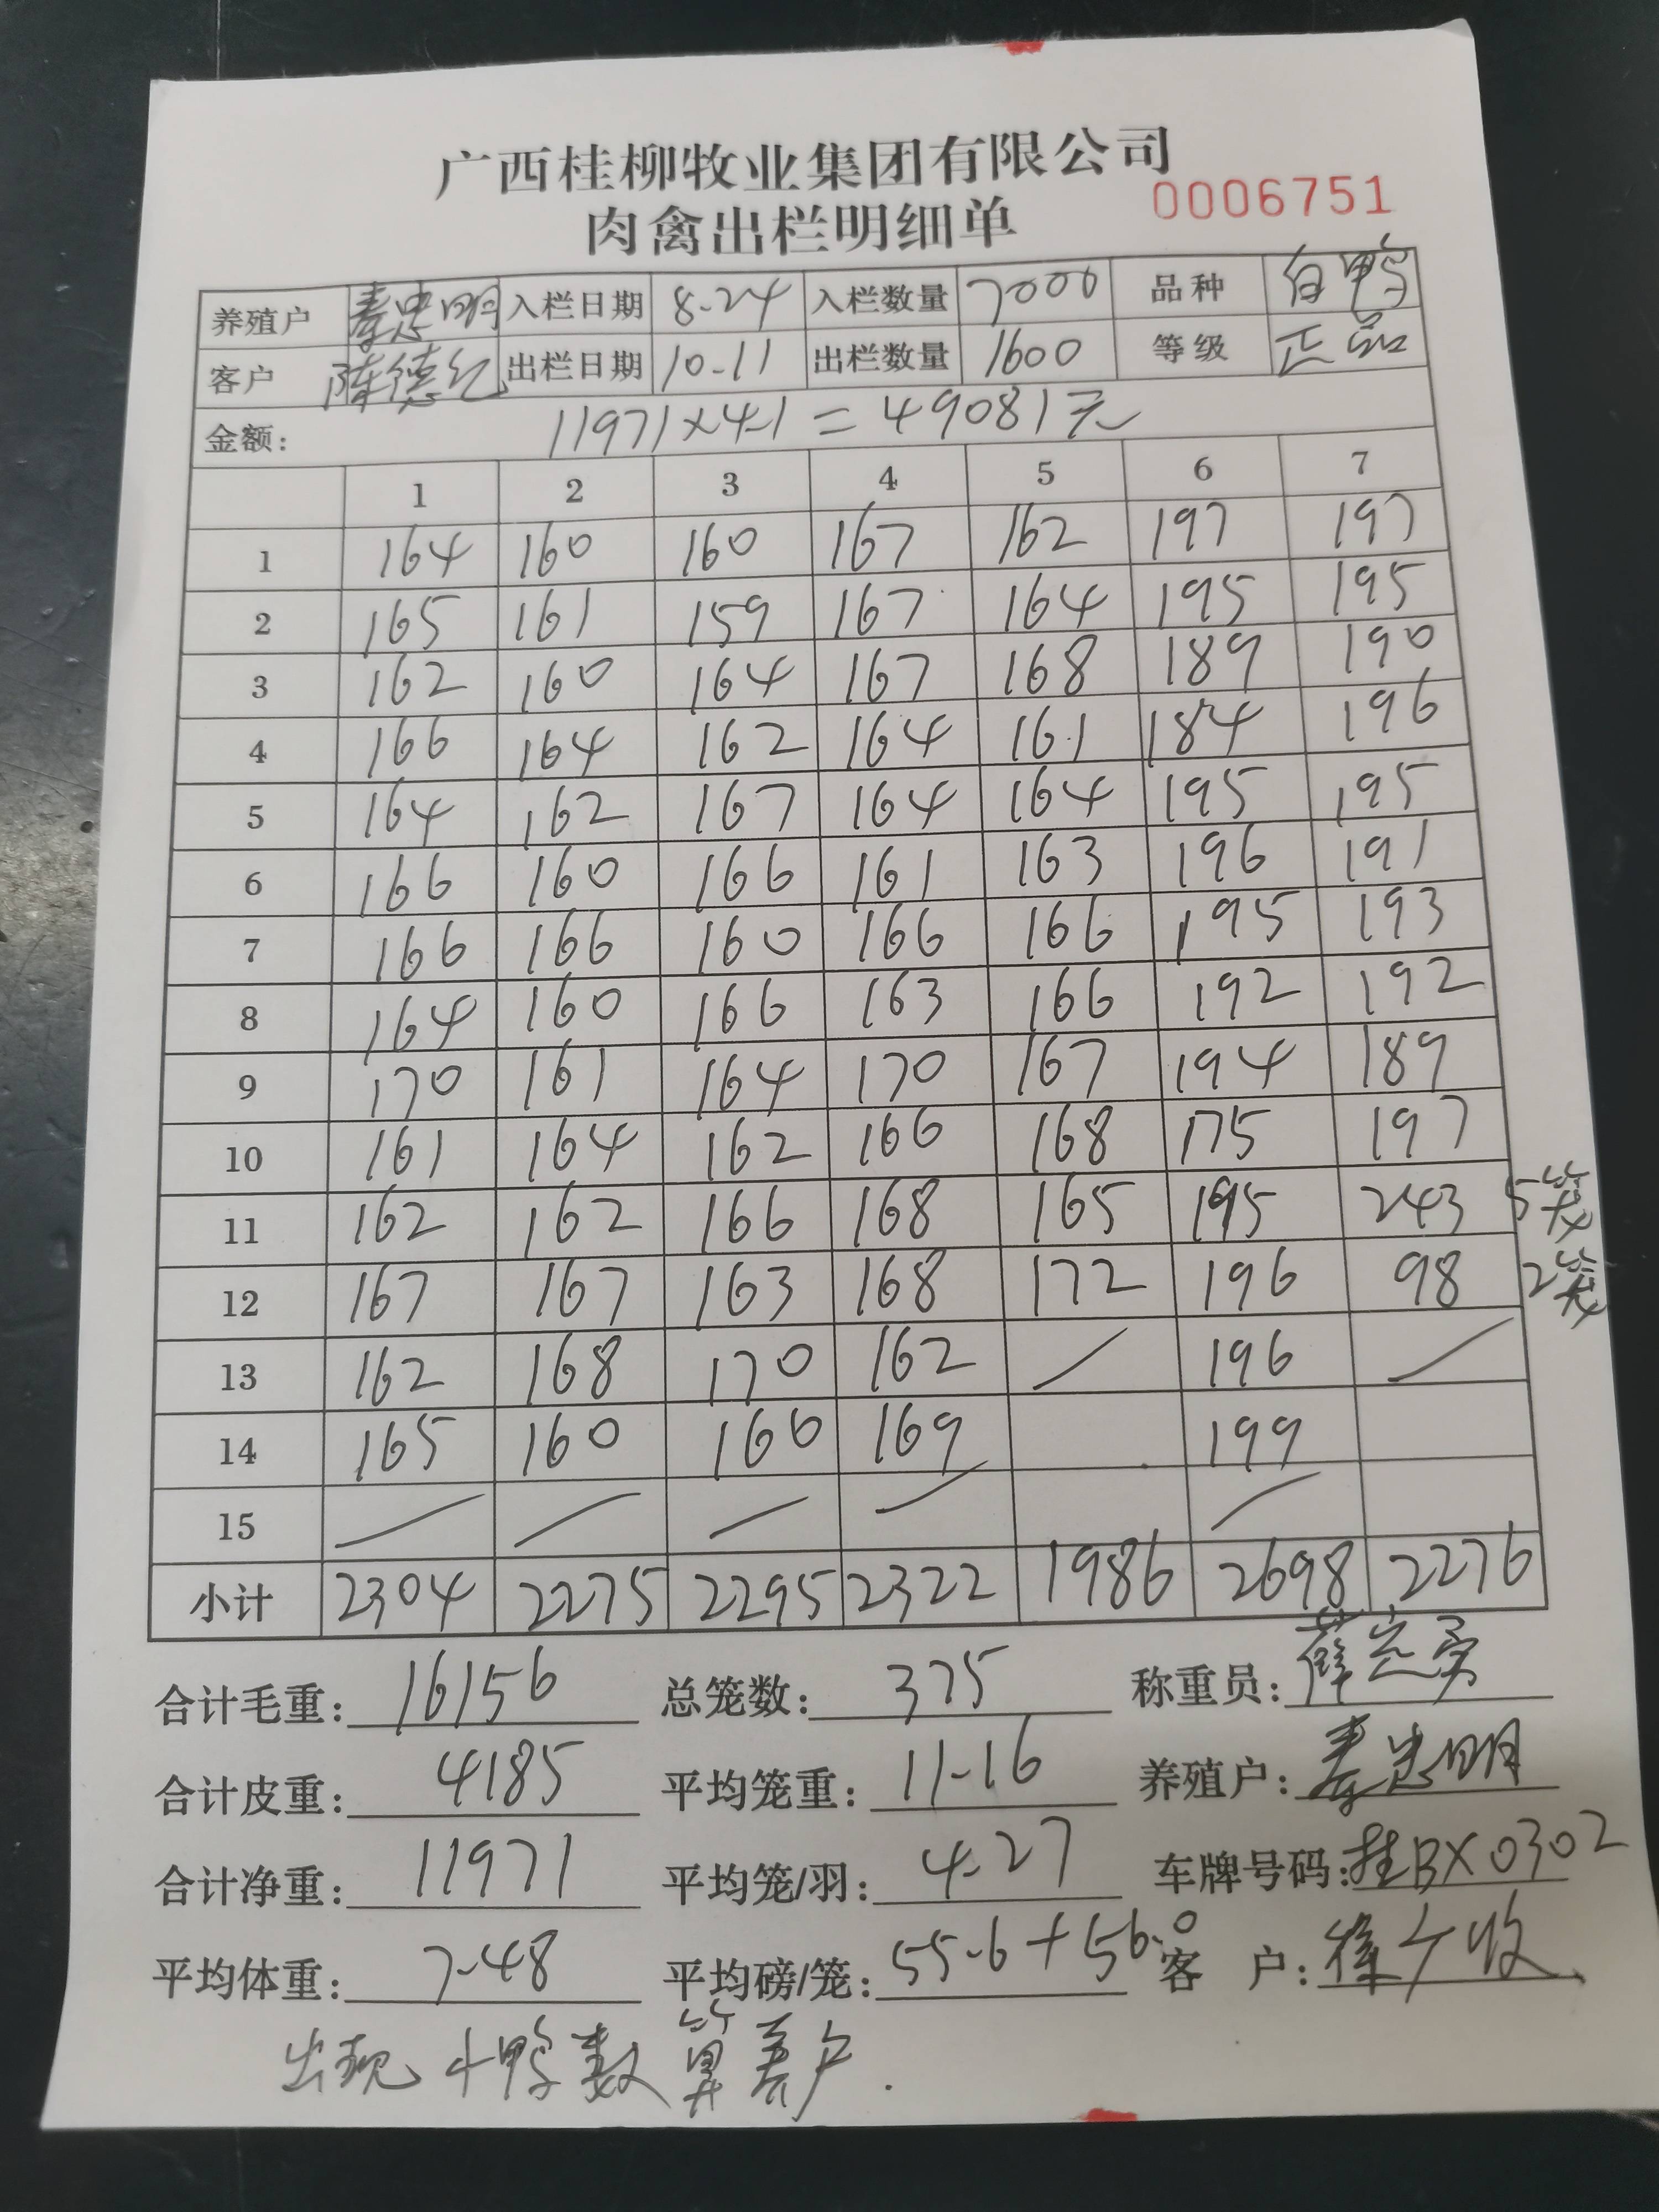 广西桂柳牧业集团有限公司
肉禽出栏明细单 0006751
养殖户 秦忠明 入栏日期 8-24 入栏数量 7000 品种 白鸭
客户 陈德纪 出栏日期 10-11 出栏数量 1600 等级 正品
金额: 11971×4.1=49081元
1 2 3 4 5 6 7
1 164 160 160 167 162 197 197
2 165 161 159 167 164 195 195
3 162 160 164 167 168 189 190
4 166 164 162 164 161 184 196
5 164 162 167 164 164 195 195
6 166 160 166 161 163 196 191
7 166 166 160 166 166 195 193
8 164 160 166 163 166 192 192
9 170 161 164 170 167 194 189
10 161 164 162 166 168 175 197
11 162 162 166 168 165 195 243 5笼
12 167 167 163 168 172 196 98 2笼
13 162 168 170 162 196
14 165 160 166 169 199
15
小计 2304 2275 2295 2322 1986 2698 2276
合计毛重: 16156 总笼数: 375 称重员:
合计皮重: 4185 平均笼重: 11-16 养殖户: 秦忠明
合计净重: 11971 平均笼/羽: 4-27 车牌号码: 桂BX0302
平均体重: 7-48 平均磅/笼: 55-6+56.0 客 户:
出现 鸭数算养户.